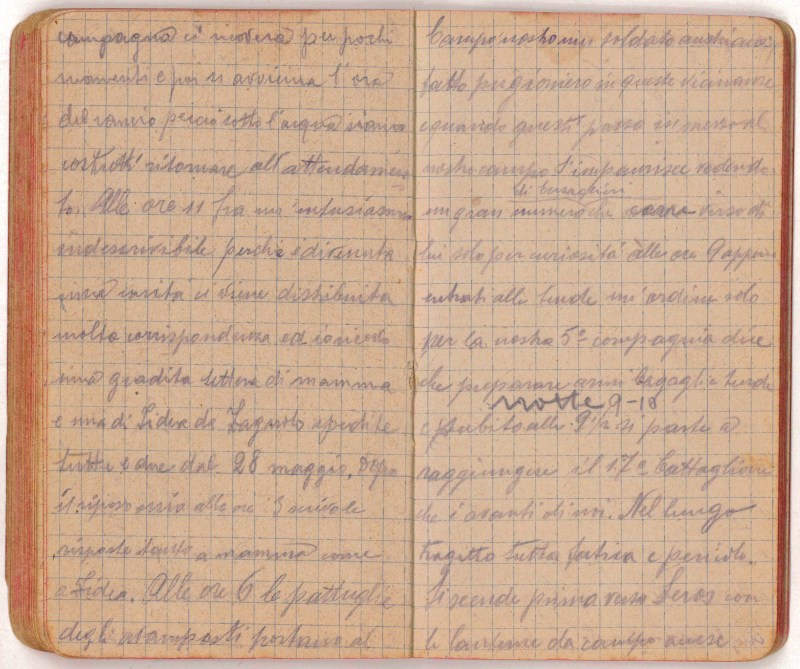 campagna ci ricovera per pochi
momenti e poi si avvicina l'ora
del rancio perciò sotto l'acqua siamo
costretti ritornare all'attendamen-
to. Alle ore 11 fra un'entusiasmo
indescrivibile perchè è divenuta
una rarità ci viene distribuita
molta corrispondenza ed io ricevo
una gradita lettera di mamma
e una di Lidea da Zagarolo spedite
tutte e due dal 28 maggio. Dopo
il riposo ossia alle ore 3 scrivo le
risposte tanto a mamma come
a Lidea. Alle ore 6 le pattuglie
degli avamposti portano al
Campo nostro un soldato austriaco
fatto prigioniero in queste vicinanze
e quando questi passa in mezzo al
nostro campo s'impaurisce vedendo
di bersaglieri
un gran numero che corre verso di
lui solo per curiosità alle ore 9 appena
entrati alle tende un'ordine solo
per la nostra 5ª compagnia dice
che preparare armi bagagli e tende
notte 9-10
e subito alle 9½ si parte a
raggiungere il 17º battaglione
che è avanti di noi. Nel lungo
tragitto tutta fatica e pericolo.
Si scende prima verso Seros con
le lanterne da campo accese